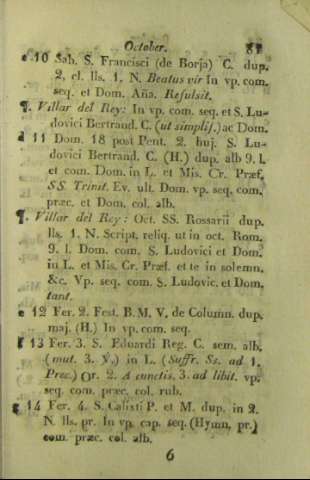 October. 87
c 10 Sab. S. Francisci (de Borja) C. dup.
2, cl. lls. 1. N. Beatus vir In vp. com.
seq. et Dom. Aña. Refulsit.
¶. Villar del Rey: In vp. com. seq. et S. Lu-
dovici Bertrand. C. (ut simplif.) ac Dom.
d 11 Dom. 18 post Pent. 2. huj. S. Lu-
dovici Bertrand. C. (H.) dup. alb 9. l.
et com. Dom. in L. et Mis. Cr. Præf.
SS. Trinit. Ev. ult. Dom. vp. seq. com.
præc. et Dom. col. alb.
¶. Villar del Rey: Oct. SS. Rossarii dup.
lls. 1. N. Script. reliq. ut in oct. Rom.
9. l. Dom. com. S. Ludovici et Dom.
in L. et Mis. Cr. Præf. et te in solemn.
&c. Vp. seq. com. S. Ludovic. et Dom.
tant.
e 12 Fer. 2. Fest. B. M. V. de Column. dup.
maj. (H.) In vp. com. seq.
f 13 Fer. 3. S. Eduardi Reg. C. sem. alb.
(mut. 3. ℣.) in L. (Suffr. Ss. ad 1.
Prec.) Or. 2. A cunctis. 3. ad libit. vp.
seq. com. præc. col. rub.
g 14 Fer. 4. S. Calixti P. et M. dup. in 2.
N. lls. pr. In vp. cap. seq. (Hymn. pr.)
com. præc. col. alb.
6